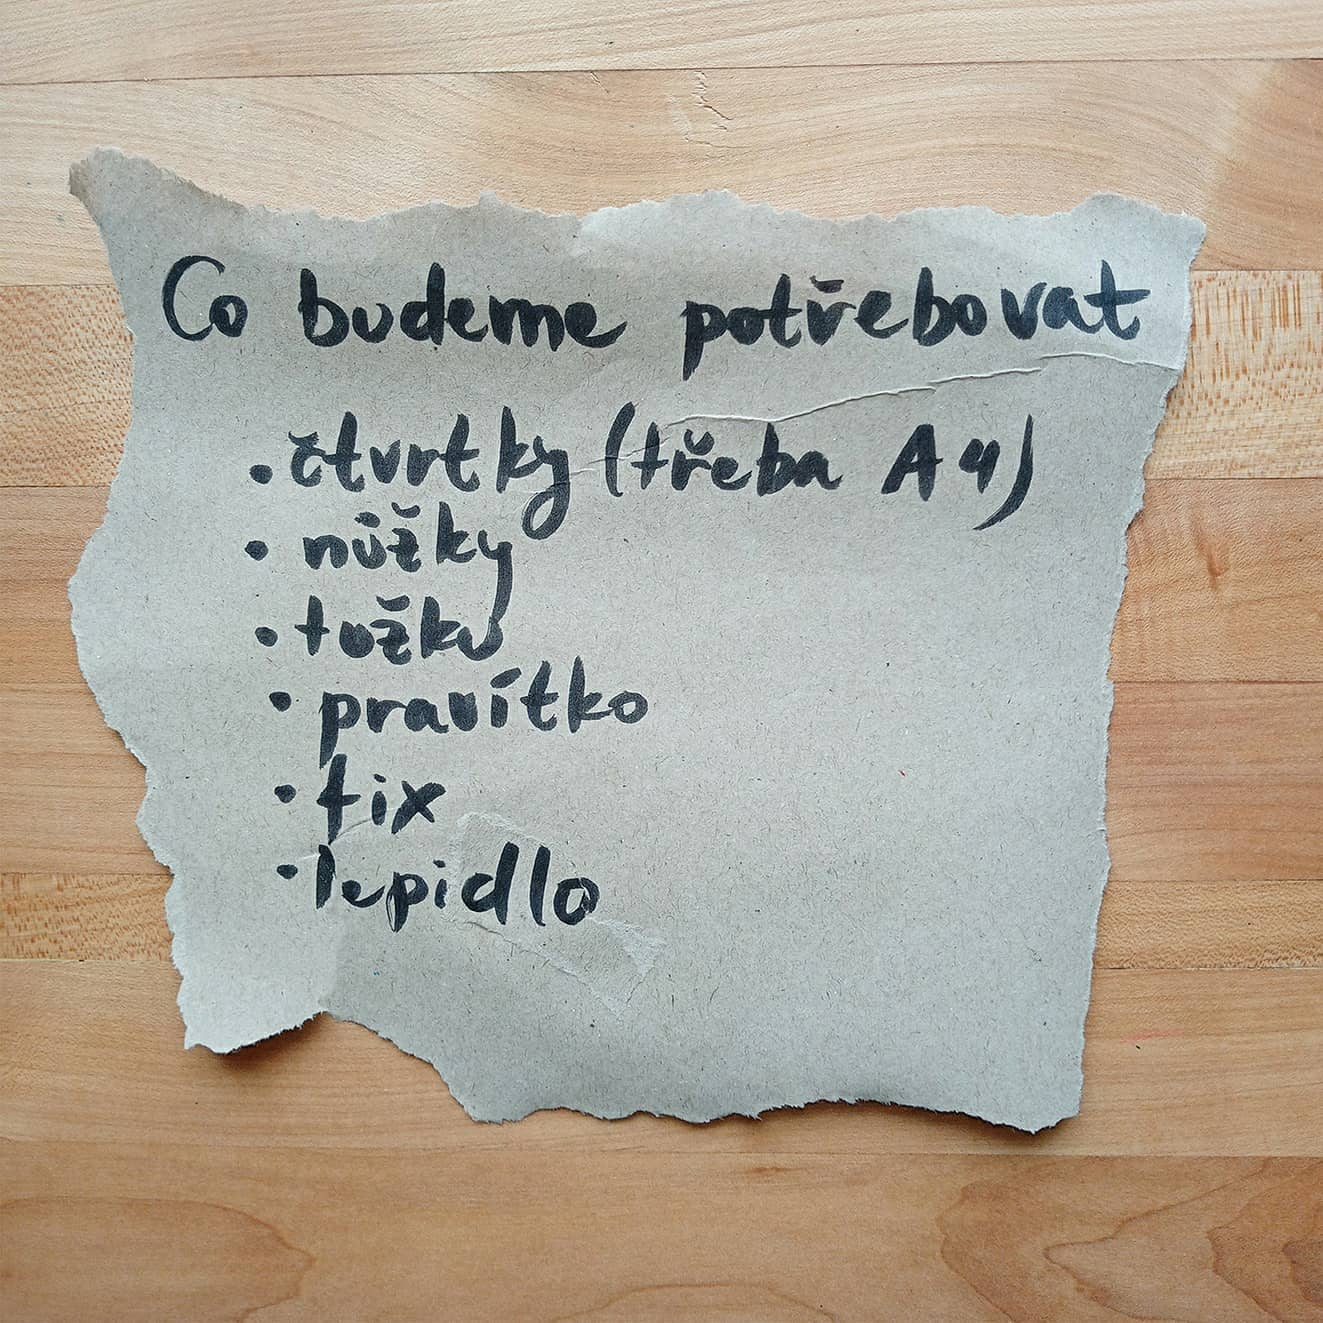 Co budeme potřebovat
• čtvrtky (třeba A4)
• nůžky
• tužku
• pravítko
• fix
• lepidlo